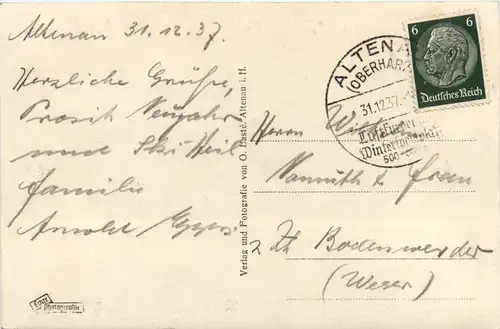 Altenau 31.12.37.
Herzliche Grüße,
Prosit Neujahr
und Ski Heil
Familie
Arnold Eggers
Verlag und Fotografie von O. Haste, Altenau i. H.
ALTENAU
(OBERHARZ)
31.12.37
Luftkurort
Wintersportplatz
6 6
Deutsches Reich
Herrn
u. Frau
z. Zt. Bodenwerder
(Weser)
Echte
Photographie